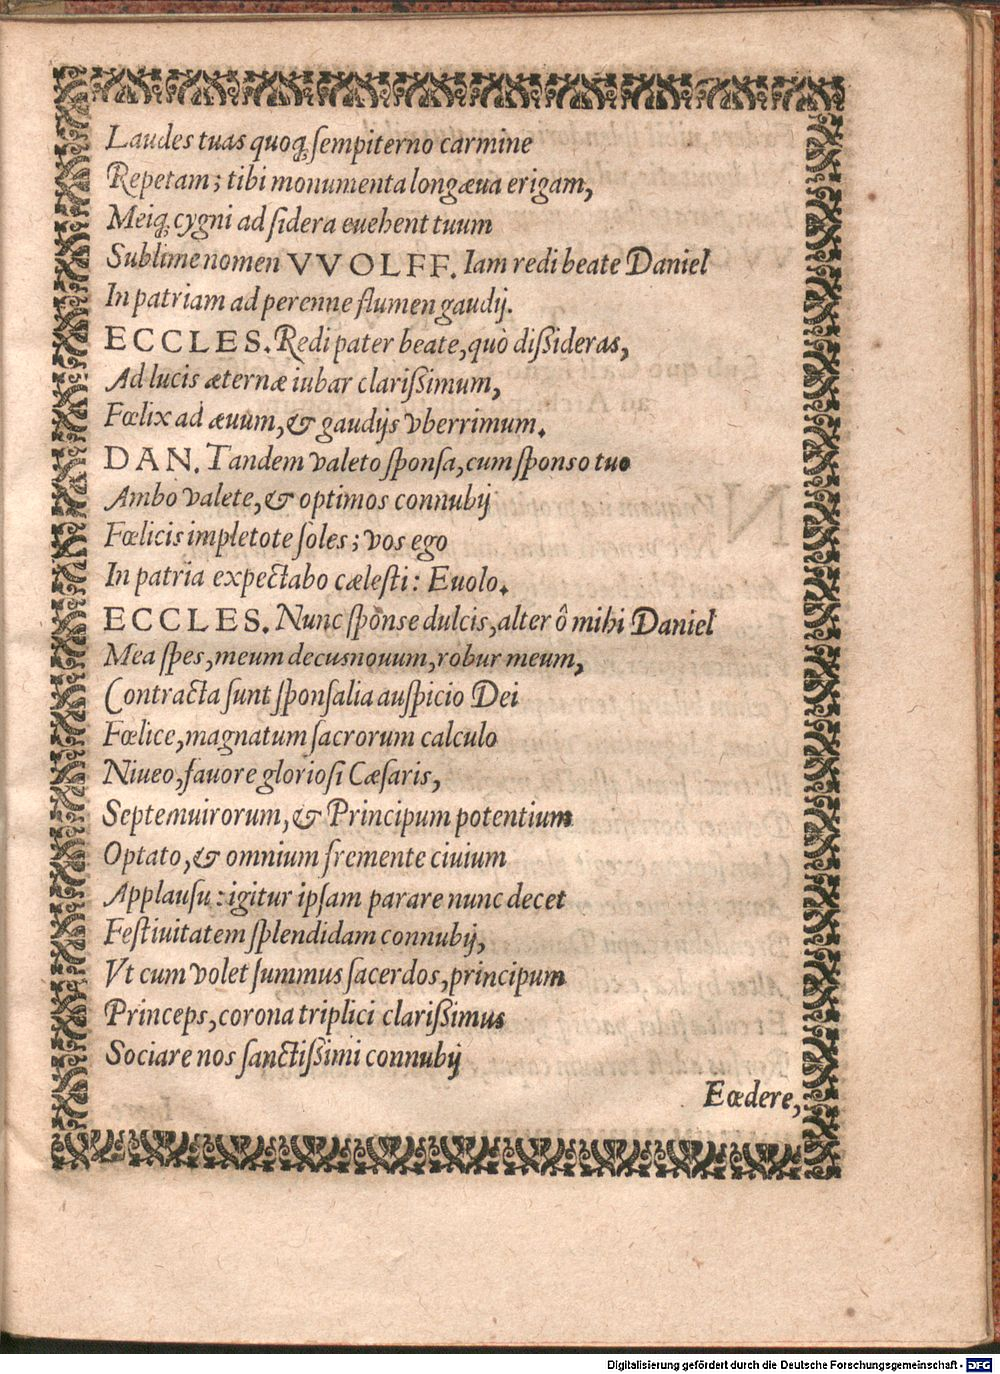 Laudes tuas quoq́; ſempiterno carmine
Repetam; tibi monumenta longæua erigam,
Meiq́; cygni ad ſidera euehent tuum
Sublime nomen VVOLFF. Iam redi beate Daniel
In patriam ad perenne flumen gaudij.
ECCLES. Redi pater beate, quò diſſideras,
Ad lucis æternæ iubar clariſſimum,
Fœlix ad æuum, & gaudijs vberrimum.
DAN. Tandem valeto ſponſa, cum ſponſo tuo
Ambo valete, & optimos connubij
Fœlicis impletote ſoles; vos ego
In patria expectabo cæleſti: Euolo.
ECCLES. Nunc ſponſe dulcis, alter ô mihi Daniel
Mea ſpes, meum decus nouum, robur meum,
Contracta ſunt ſponſalia auſpicio Dei
Fœlice, magnatum ſacrorum calculo
Niueo, fauore glorioſi Cæſaris,
Septemuirorum, & Principum potentium
Optato, & omnium fremente ciuium
Applauſu: igitur ipſam parare nunc decet
Feſtiuitatem ſplendidam connubij,
Vt cum volet ſummus ſacerdos, principum
Princeps, corona triplici clariſſimus
Sociare nos ſanctiſſimi connubij
Eœdere,
Digitalisierung gefördert durch die Deutsche Forschungsgemeinschaft - DFG